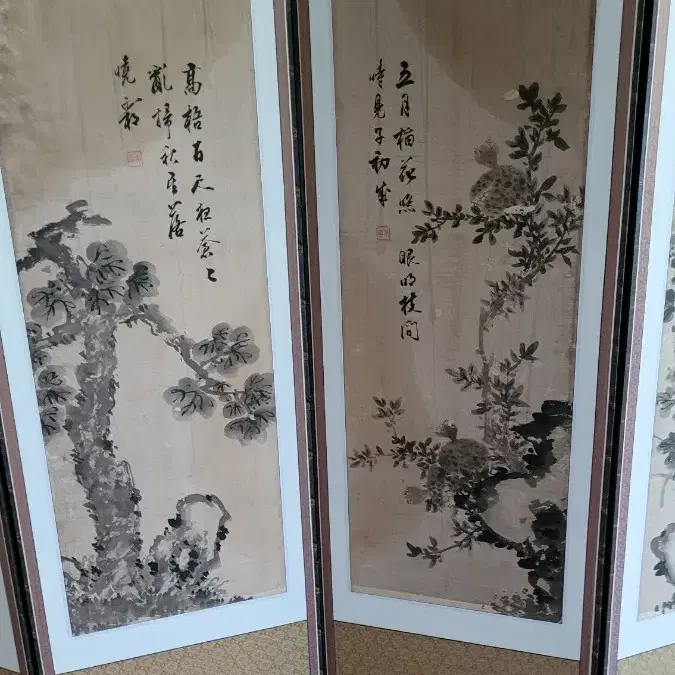 五月榴花照 眼明枝間
時見子初成
高梧百尺夜蒼々
亂掃秋星落
曉霜